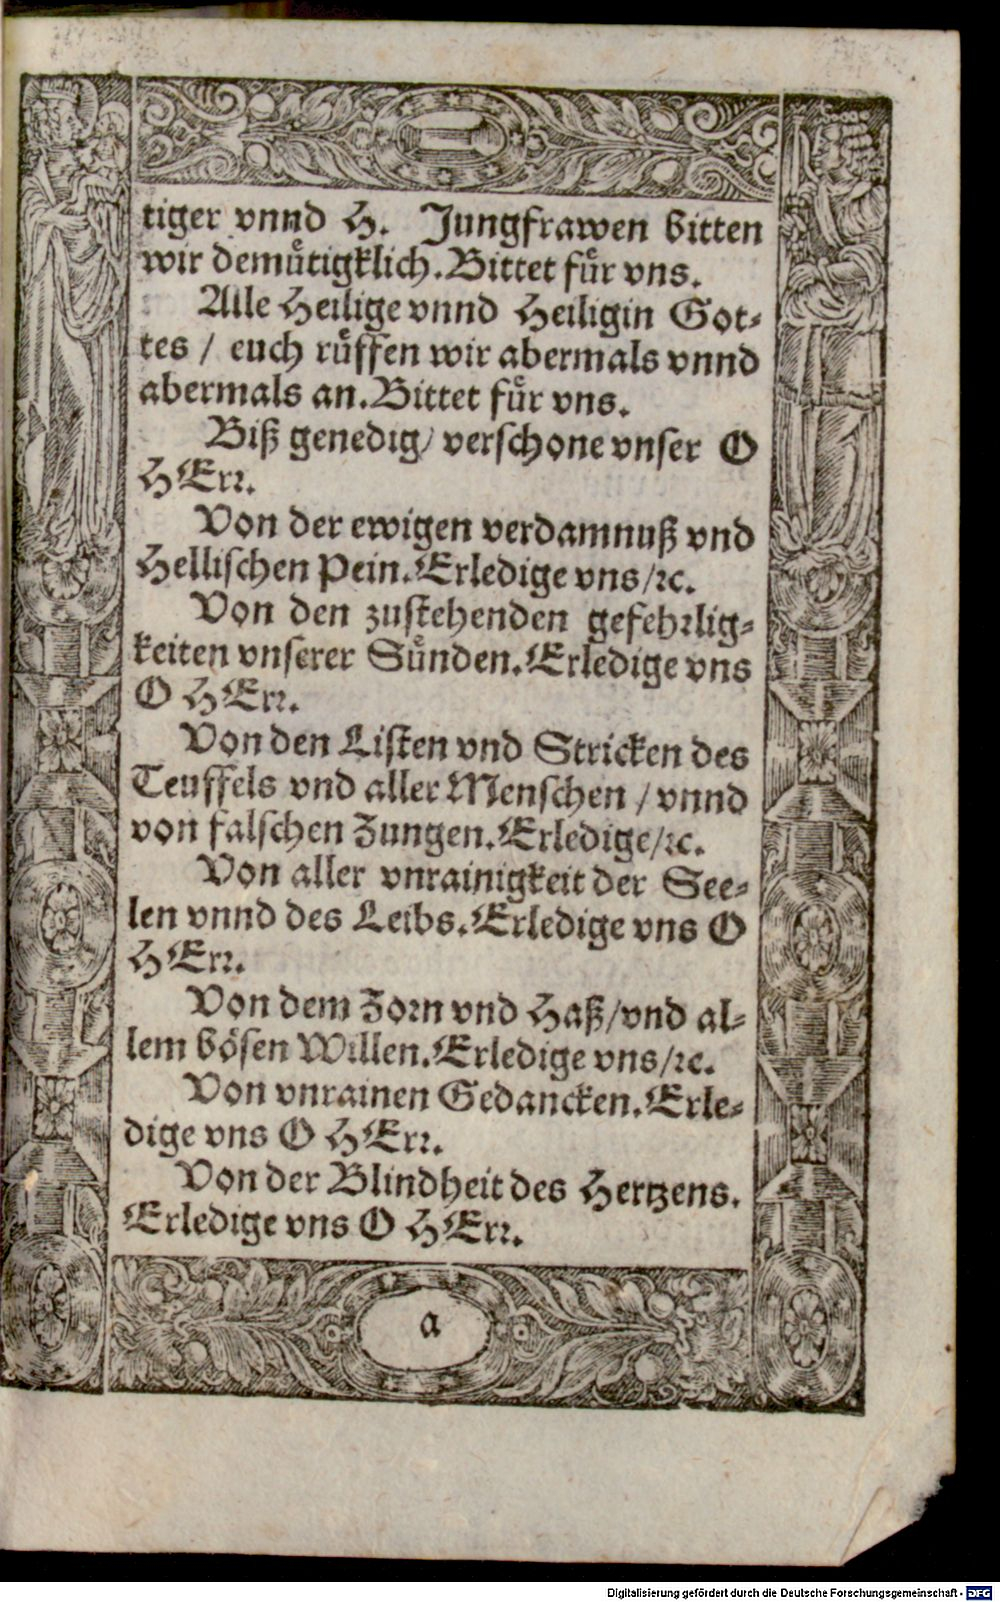 tiger vnnd H. Jungfrawen bitten
wir demuͤtigklich. Bittet fuͤr vns.
Alle Heilige vnnd Heiligin Got⸗
tes / euch ruͤffen wir abermals vnnd
abermals an. Bittet fuͤr vns.
Biß genedig / verschone vnser O
HErꝛ.
Von der ewigen verdamnuß vnd
Hellischen Pein. Erledige vns / ꝛc.
Von den zustehenden gefehꝛlig⸗
keiten vnserer Suͤnden. Erledige vns
O HErꝛ.
Von den Listen vnd Stricken des
Teuffels vnd aller Menschen / vnnd
von falschen Zungen. Erledige / ꝛc.
Von aller vnrainigkeit der See⸗
len vnnd des Leibs. Erledige vns O
HErꝛ.
Von dem Zoꝛn vnd Haß / vnd al⸗
lem boͤsen Willen. Erledige vns / ꝛc.
Von vnrainen Gedancken. Erle⸗
dige vns O HErꝛ.
Von der Blindheit des Hertzens.
Erledige vns O HErꝛ.
a
Digitalisierung gefördert durch die Deutsche Forschungsgemeinschaft - DFG